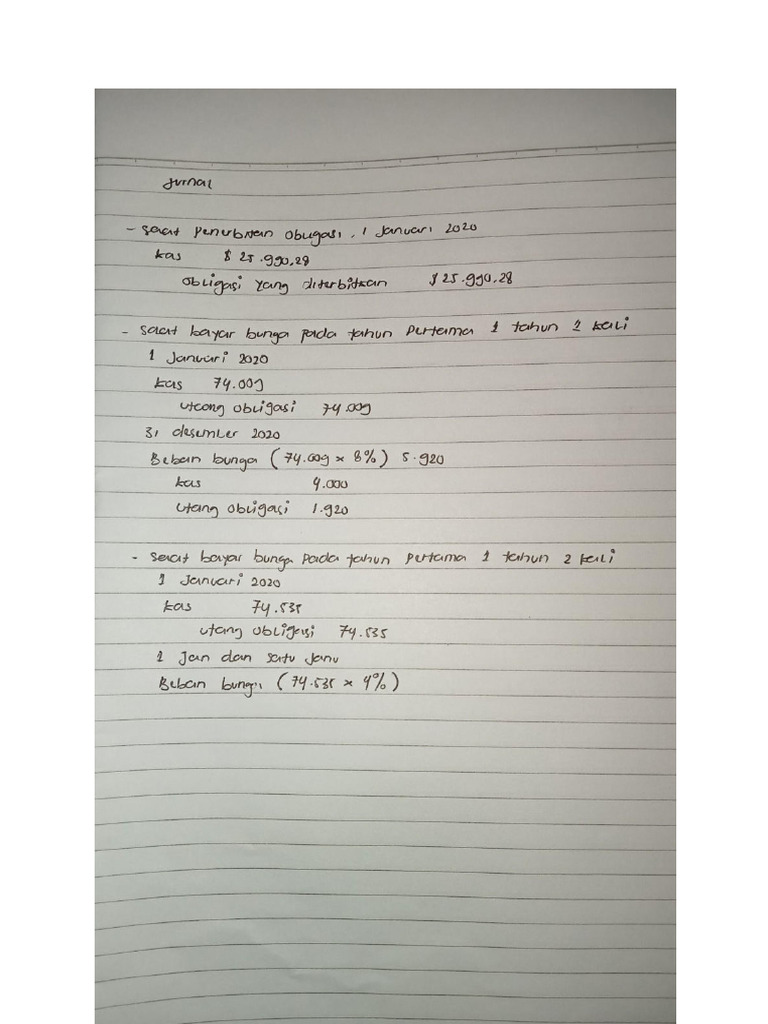 Jurnal
- Saat Penerbitan Obligasi, 1 Januari 2020
kas $ 25.990,28
Obligasi yang diterbitkan $ 25.990,28
- Saat bayar bunga pada tahun Pertama 1 tahun 1 kali
1 Januari 2020
kas 74.009
utang obligasi 74.009
31 desember 2020
Beban bunga (74.009 x 8%) 5.920
kas 4.000
utang obligasi 1.920
- Saat bayar bunga pada tahun pertama 1 tahun 2 kali
1 Januari 2020
kas 74.535
utang obligasi 74.535
1 Jan dan satu Janu
Beban bunga (74.535 x 4%)